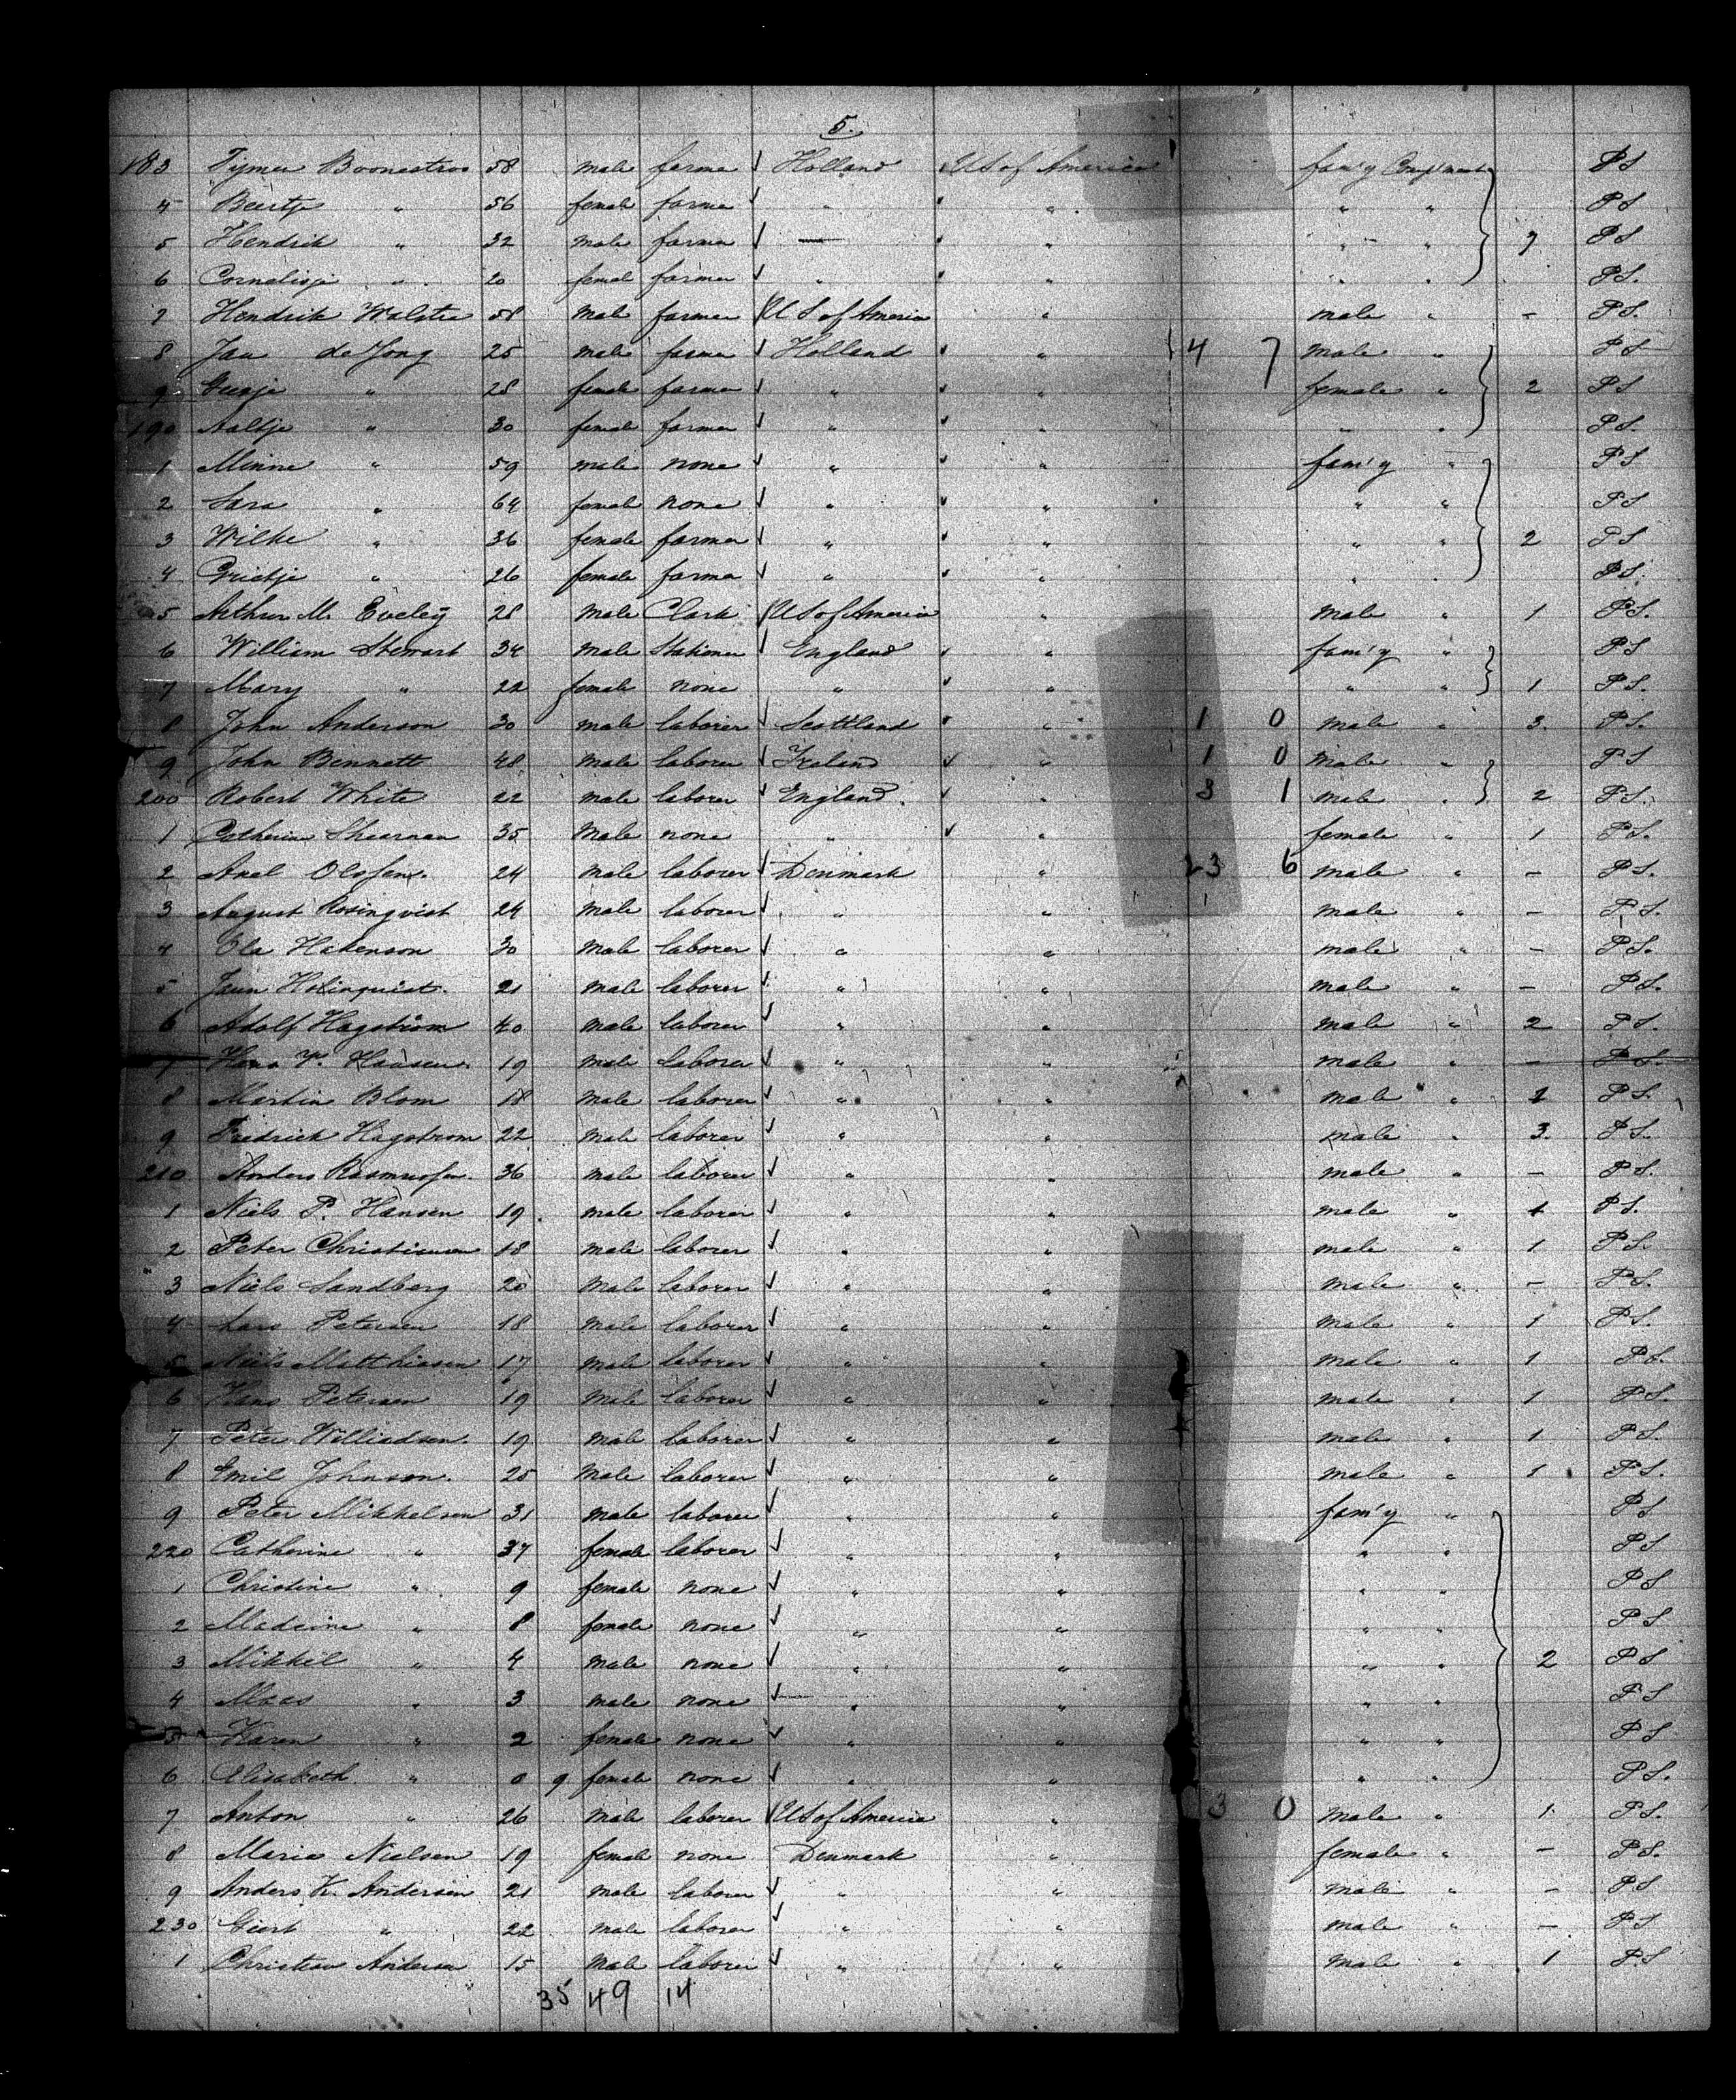 5.
183 Tymen Boonastros 58 male farmer ✓ Holland ✓ US of America fam'y Comp'ment PS
4 Beertje " 56 female farmer ✓ " ✓ " " " PS
5 Hendrik " 32 male farmer ✓ — ✓ " " " 7 PS
6 Cornelisje " 20 female farmer ✓ " ✓ " " " PS.
7 Hendrik Walstra 58 male farmer US of America " male " - PS.
8 Jan de Jong 25 male farmer ✓ Holland ✓ " 4 7 male " PS
9 " 28 female farmer ✓ " ✓ " female " 2 PS
190 Aaltje " 30 female farmer ✓ " ✓ " " " PS.
1 Minne " 59 male none ✓ " ✓ " fam'y " PS
2 Sara " 64 female none ✓ " ✓ " " " PS
3 Wilke " 36 female farmer ✓ " ✓ " " " 2 PS
4 Grietje " 26 female farmer ✓ " ✓ " " " PS.
5 Arthur M. Eveleg 28 male Clark US of America " male " 1 PS.
6 William Stewart 34 male Stationer ✓ England ✓ " fam'y " PS
7 Mary " 22 female none " ✓ " " " 1 PS.
8 John Anderson 30 male laborer ✓ Scottland ✓ " 1 0 male " 3. PS.
9 John Bennett 48 male laborer ✓ Ireland ✓ " 1 0 male " PS
200 Robert White 22 male laborer ✓ England. ✓ " 3 1 male " 2 PS.
1 Catherine Shearnen 35 male none " ✓ " female " 1 PS.
2 Axel Olofsen. 24 male laborer ✓ Denmark " 23 6 male " - PS.
3 August Rosinqvist 24 male laborer ✓ " " male " - PS.
4 Ola Hakenson 30 male laborer ✓ " " male " - PS.
5 Holinquist. 21 male laborer ✓ " " male " - PS.
6 Adolf Hagstrom 40 male laborer ✓ " " male " 2 PS.
7 Hans V. Hansen. 19 male laborer ✓ " " male " - PS.
8 Martin Blom 18 male laborer ✓ " " male " 2 PS.
9 Fredrick Hagstrom 22 male laborer ✓ " " male " 3. PS.
210 Anders Rasmussen. 36 male laborer ✓ " " male " - PS.
1 Niels P. Hansen 19. male laborer ✓ " " male " 1 PS.
2 Peter Christiansen 18 male laborer ✓ " " male " 1 PS.
3 Niels Sandberg 20 male laborer ✓ " " male " - PS.
4 Lars Petersen 18 male laborer ✓ " " male " 1 PS.
5 Niels Matthiasen 17 male laborer ✓ " " male " 1 PS.
6 Hans Petersen 19 male laborer ✓ " " male " 1 PS.
7 Peter Williadsen. 19 male laborer ✓ " " male " 1 PS.
8 Emil Johnson. 25 male laborer ✓ " " male " 1 PS.
9 Peter Mikkelsen 31 male laborer ✓ " " fam'y " PS
220 Catherine " 37 female laborer ✓ " " " " PS
1 Christine " 9 female none ✓ " " " " PS
2 " 8 female none ✓ " " " " PS
3 Mikkel " 4 male none ✓ " " " " 2 PS
4 " 3 male none ✓ " " " " PS
5 Karen " 2 female none ✓ " " " " PS
6 Elisabeth " 0 9 female none ✓ " " " " PS.
7 Anton " 26 male laborer US of America " 3 0 male " 1 PS.
8 Maria Nielsen 19 female none Denmark " female " - PS.
9 Anders K. Andersen 21 male laborer ✓ " " male " - PS
230 Geert " 22 male laborer ✓ " " male " - PS
1 Christian Andersen 15 male laborer ✓ " " male " 1 PS
35 49 14